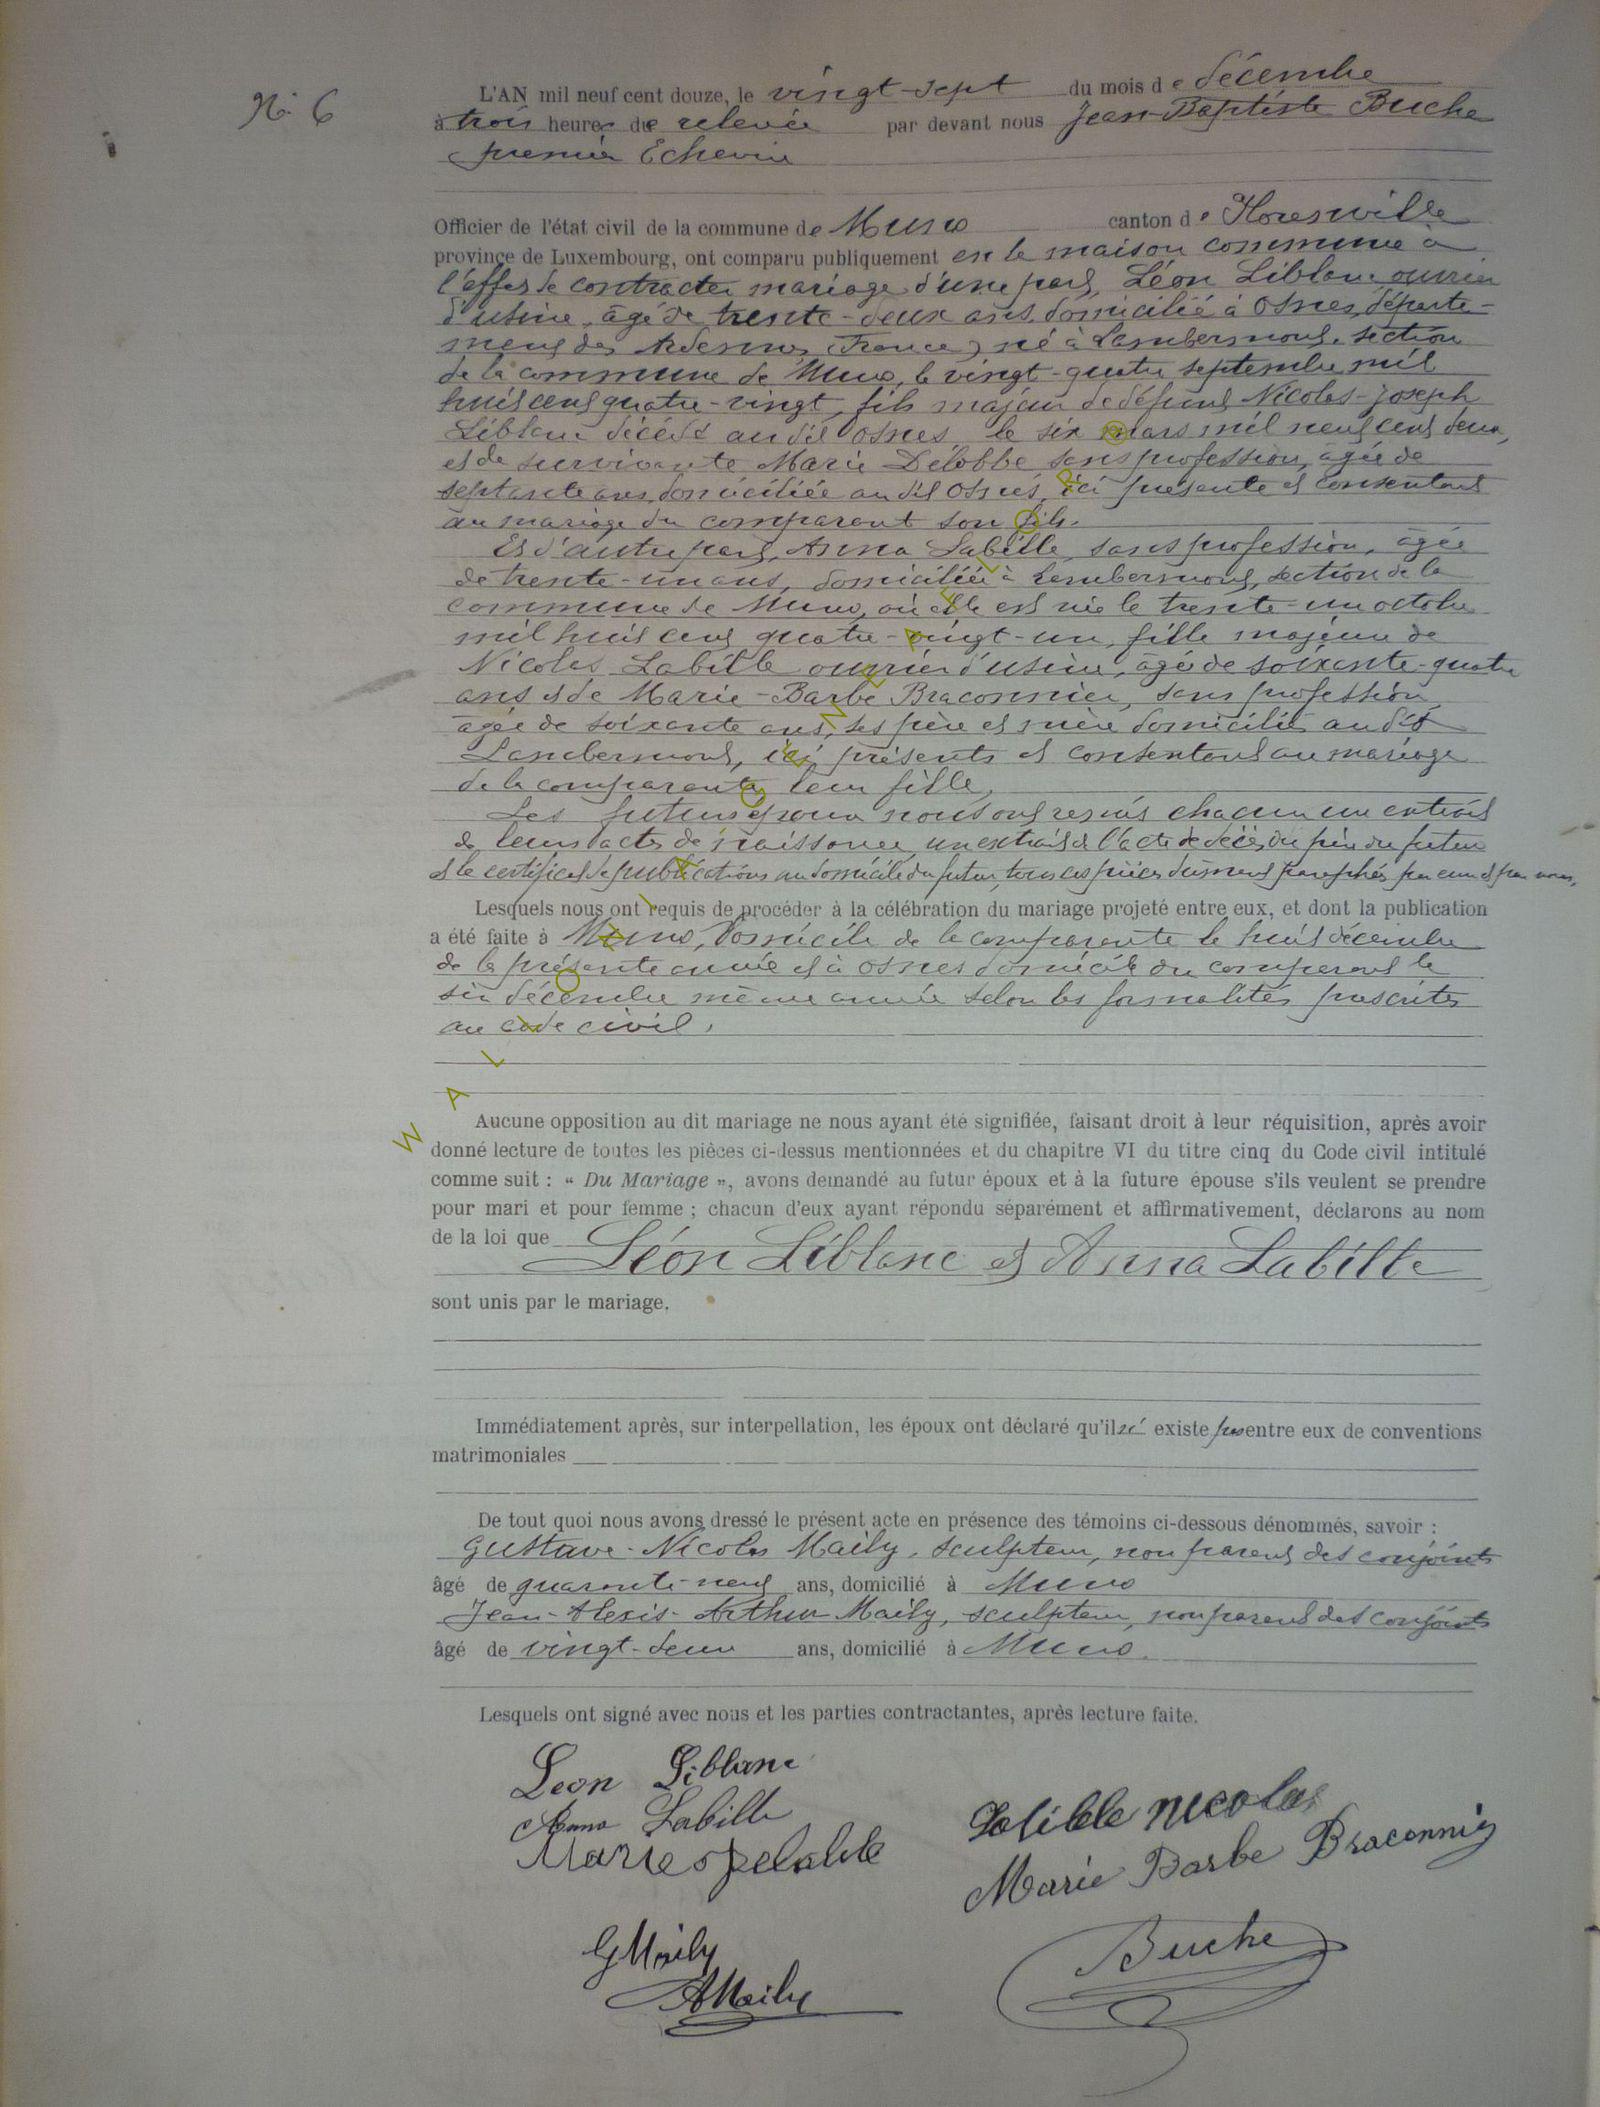 No 6
L'AN mil neuf cent douze, le vingt-sept du mois de décembre
à trois heures de relevée par devant nous Jean-Baptiste Buche
premier Echevin
Officier de l'état civil de la commune de Muno canton de Florenville
province de Luxembourg, ont comparu publiquement en la maison commune à
l'effet de contracter mariage d'une part, Léon Liblanc ouvrier
d'usine, âgé de trente-deux ans, domicilié à Osnes, départe-
ment des Ardennes (France) né à Lambermont, section
de la commune de Muno, le vingt-quatre septembre mil
huit cent quatre-vingt, fils majeur de défunt Nicolas-Joseph
Liblanc décédé au dit Osnes, le six mars mil neuf cent deux,
et de survivante Marie Delobbe sans profession, âgée de
septante ans, domiciliée au dit Osnes, ici présente et consentant
au mariage du comparant son fils.
Et d'autre part, Anna Labille, sans profession, âgée
de trente-un ans, domiciliée à Lambermont, section de la
commune de Muno, où elle est née le trente-un octobre
mil huit cent quatre-vingt-un, fille majeure de
Nicolas Labille ouvrier d'usine, âgé de soixante-quatre
ans et de Marie-Barbe Braconnier, sans profession,
âgée de soixante ans, ses père et mère domiciliés au dit
Lambermont, ici présents et consentant au mariage
de la comparante, leur fille.
Les futurs époux nous ont remis chacun un extrait
de leurs actes de naissance, un extrait de l'acte de décès du père du futur
et le certificat de publications au domicile du futur, tous ces pièces dûment paraphés par eux et par nous.
Lesquels nous ont requis de procéder à la célébration du mariage projeté entre eux, et dont la publication
a été faite à Muno, domicile de la comparante le huit décembre
de la présente année et à Osnes domicile du comparant le
six décembre même année selon les formalités prescrites
au code civil.
Aucune opposition au dit mariage ne nous ayant été signifiée, faisant droit à leur réquisition, après avoir
donné lecture de toutes les pièces ci-dessus mentionnées et du chapitre VI du titre cinq du Code civil intitulé
comme suit : « Du Mariage », avons demandé au futur époux et à la future épouse s'ils veulent se prendre
pour mari et pour femme ; chacun d'eux ayant répondu séparément et affirmativement, déclarons au nom
de la loi que Léon Liblanc et Anna Labille
sont unis par le mariage.
Immédiatement après, sur interpellation, les époux ont déclaré qu'il n'existe pas entre eux de conventions
matrimoniales
De tout quoi nous avons dressé le présent acte en présence des témoins ci-dessous dénommés, savoir :
Gustave-Nicolas Maily, sculpteur, non parent des conjoints
âgé de quarante-neuf ans, domicilié à Muno
Jean-Alexis-Arthur Maily, sculpteur, non parent des conjoints
âgé de vingt-deux ans, domicilié à Muno.
Lesquels ont signé avec nous et les parties contractantes, après lecture faite.
Leon Liblanc
Anna Labille
Labille Nicolas
Marie Barbe Braconnier
GMaily
AMaily
Buche
WALLONIA GENEALOR